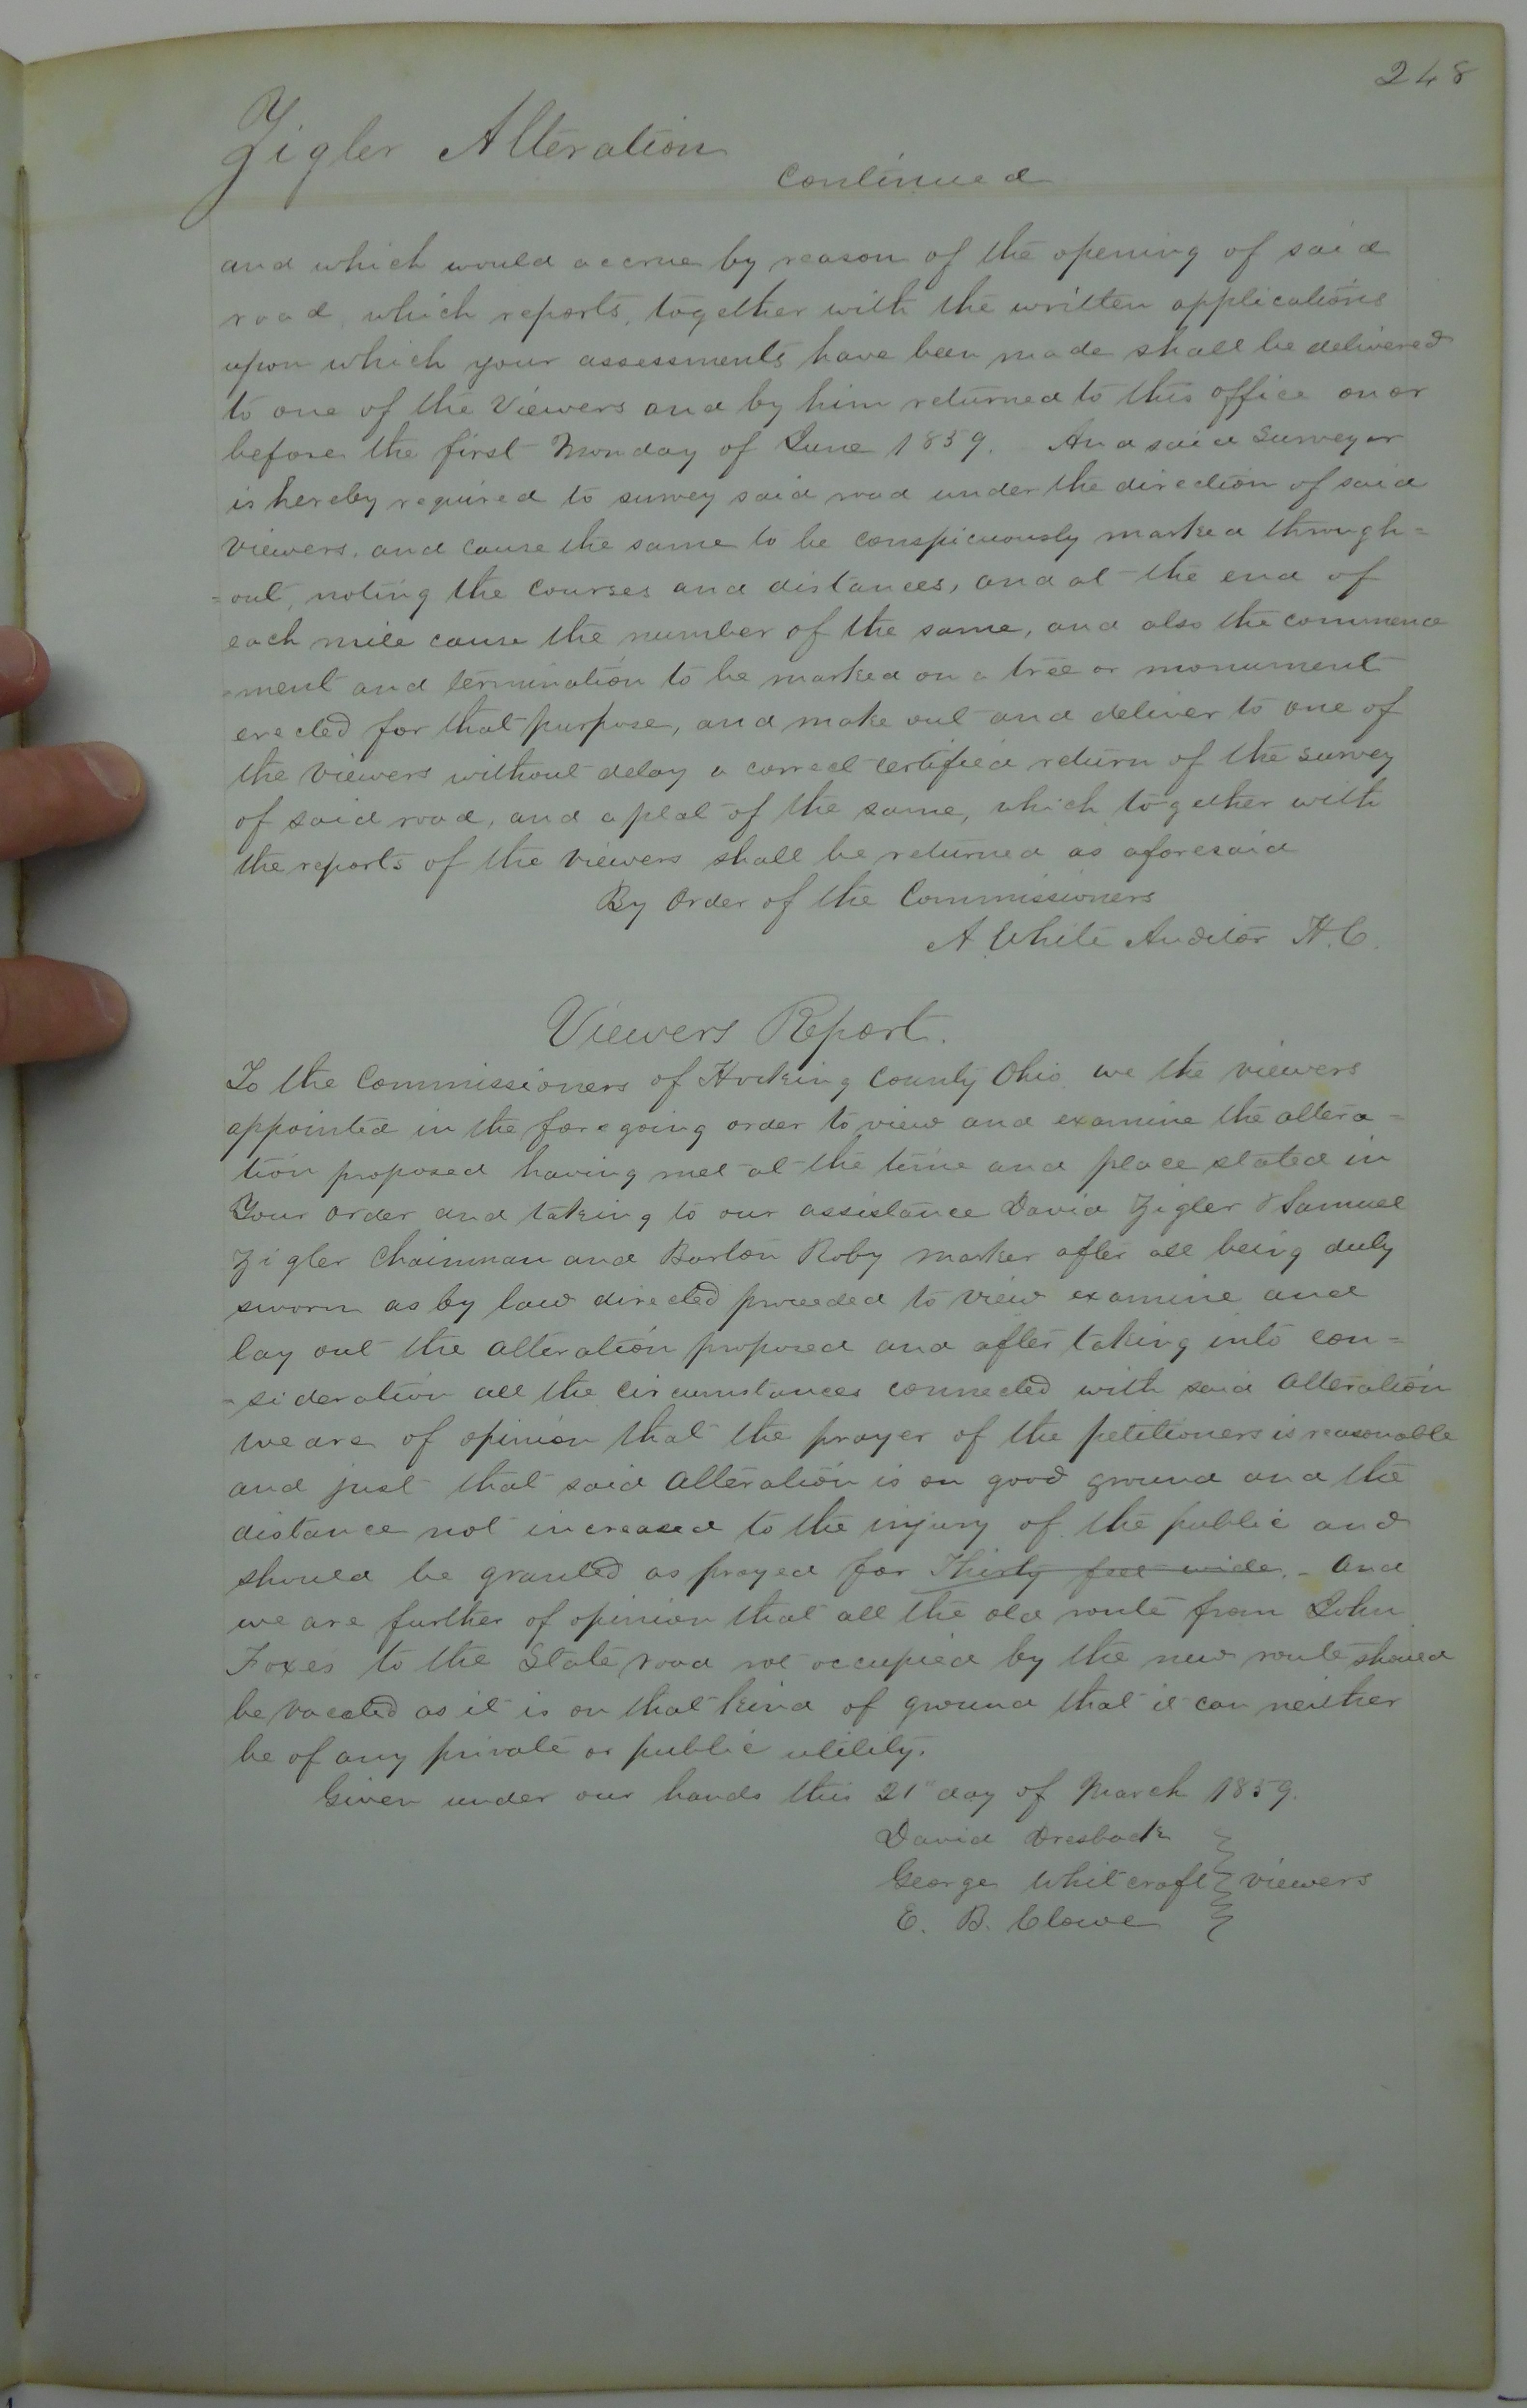 248
Zigler Alteration
continued
and which would accrue by reason of the opening of said
road, which reports, together with the written applications
upon which your assessments have been made shall be delivered
to one of the Viewers and by him returned to this office on or
before the first Monday of June 1859. And said Surveyor
is hereby required to survey said road under the direction of said
viewers, and cause the same to be conspicuously marked through=
=out, noting the courses and distances, and at the end of
each mile cause the number of the same, and also the commence
=ment and termination to be marked on a tree or monument
erected for that purpose, and make out and deliver to one of
the viewers without delay a correct certified return of the survey
of said road, and a plat of the same, which together with
the reports of the viewers shall be returned as aforesaid
By Order of the Commissioners
A White Auditor H.C.
Viewers Report.
To the Commissioners of Hocking County Ohio we the viewers
appointed in the foregoing order to view and examine the altera=
tion proposed having met at the time and place stated in
Your order and taking to our assistance David Zigler & Samuel
Zigler Chainman and Barton Roby marker after all being duly
sworn as by law directed proceeded to view examine and
lay out the alteration proposed and after taking into con=
=sideration all the circumstances connected with said alteration
we are of opinion that the prayer of the petitioners is reasonable
and just that said alteration is on good ground and the
distance not increased to the injury of the public and
should be granted as prayed for Thirty feet wide. - and
we are further of opinion that all the old route from John
Foxes to the State road not occupied by the new route should
be vacated as it is on that kind of ground that it can neither
be of any private or public utility.
Given under our hands this 21" day of March 1859.
David Dresback
George Whitcraft } viewers
E. B. Clowe